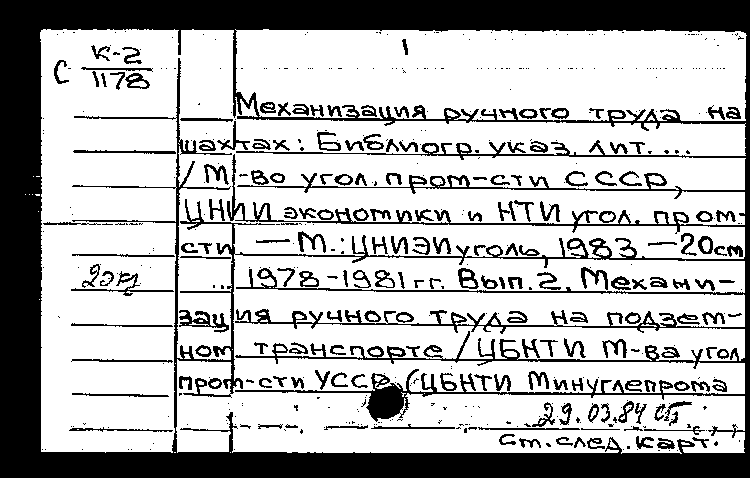 1
С К-2
1178
Механизация ручного труда на
шахтах: Библиогр. указ. лит. ...
/ М-во угол. пром-сти СССР,
ЦНИИ экономики и НТИ угол. пром-
сти. — М.: ЦНИЭИуголь, 1983. — 20см
2экз
... 1978-1981 гг. Вып. 2. Механи-
зация ручного труда на подзем-
ном транспорте / ЦБНТИ М-ва угол.
пром-сти УССР (ЦБНТИ Минуглепрома
29.03.84
См. след. карт.